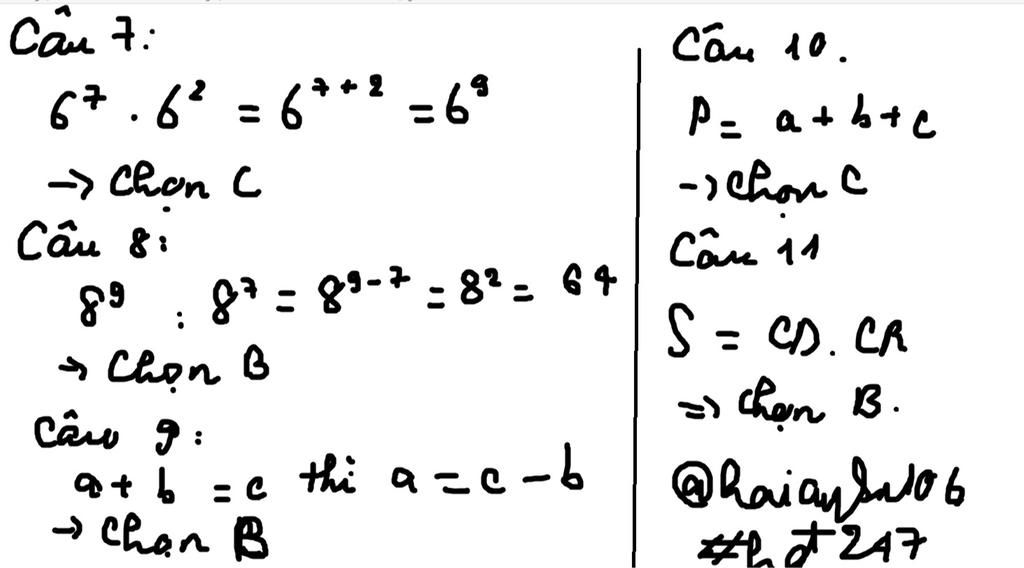 Câu 7:
6⁷ . 6² = 6⁷⁺² = 6⁹
→ Chọn C
Câu 8:
8⁹ : 8⁷ = 8⁹⁻⁷ = 8² = 64
→ Chọn B
Câu 9:
a + b = c thì a = c - b
→ Chọn B
Câu 10.
P = a + b + c
→ Chọn C
Câu 11
S = CD. CR
=> Chọn B.
#hđ247